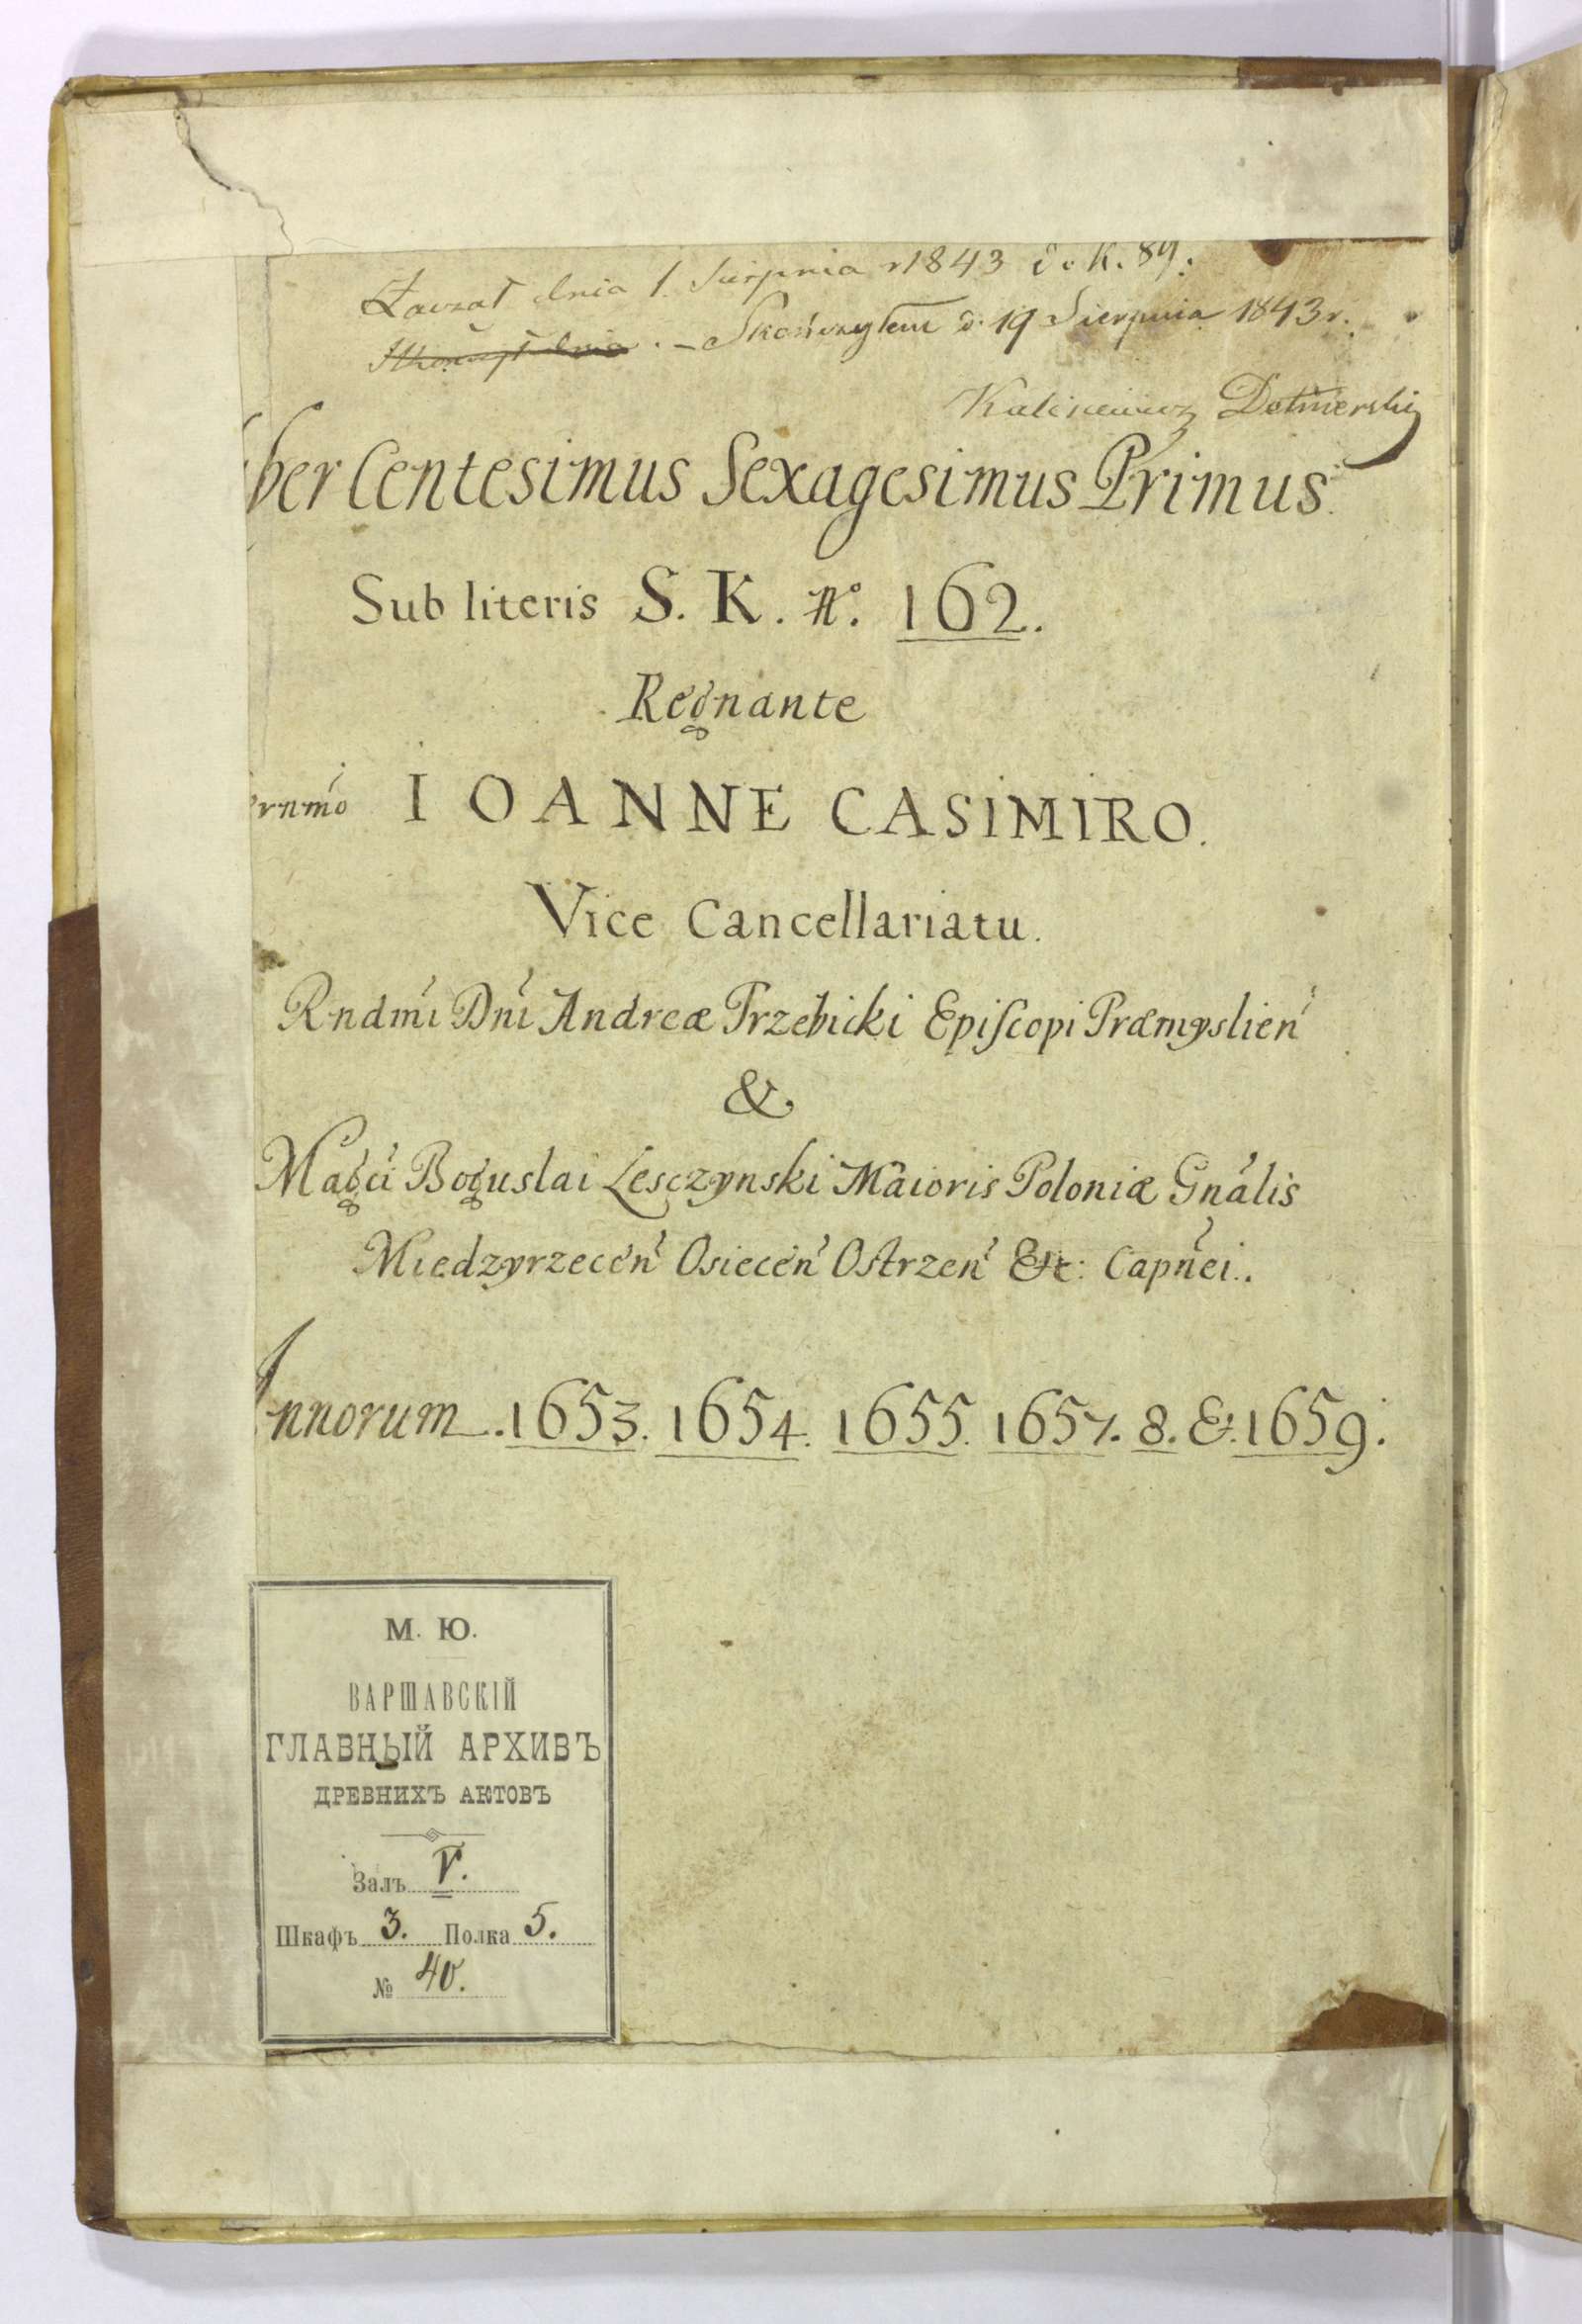 Zaczął dnia 1. Sierpnia r 1843 do k. 89.
Skończył dnia . – Skończyłem d. 19 Sierpnia 1843 r.
ber Centesimus Sexagesimus Primus.
Sub literis S. K. No. 162.
Regnante
rnmo IOANNE CASIMIRO.
Vice Cancellariatu.
Rndmi Dni Andreæ Trzebicki Episcopi Præmyslien
&
Magci Boguslai Lesczynski Maioris Poloniæ Gnalis
Miedzyrzecen Osiecen Ostrzen &c: Capnei.
Annorum. 1653. 1654. 1655. 1657. 8. & 1659.
М. Ю.
ВАРШАВСКІЙ
ГЛАВНЫЙ АРХИВЪ
ДРЕВНИХЪ АКТОВЪ
Залъ V.
Шкафъ 3. Полка 5.
№ 40.